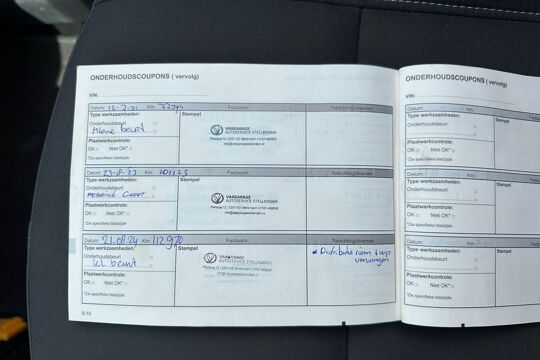 ONDERHOUDSCOUPONS ( vervolg)
VIN:
Datum: 15-7-21 Km: 77794 Factuurnr: Toelichting/diversen
Type werkzaamheden: Stempel
Onderhoudsbeurt
Kleine beurt
VAKGARAGE
AUTOSERVICE STELLENDAM
Plaatwerkcontrole:
OK Niet OK*
*Zie specifieke bladzijde
Datum: 23-8-23 Km: 101123 Factuurnr: Toelichting/diversen
Type werkzaamheden: Stempel
Onderhoudsbeurt
VAKGARAGE
AUTOSERVICE STELLENDAM
Plaatwerkcontrole:
OK Niet OK*
*Zie specifieke bladzijde
Datum: 21.08.24 Km: 112970 Factuurnr: Toelichting/diversen
Type werkzaamheden: Stempel
Onderhoudsbeurt
kl. beurt
VAKGARAGE
AUTOSERVICE STELLENDAM
Distributie riem
vervangen
Plaatwerkcontrole:
OK Niet OK*
*Zie specifieke bladzijde
6.10
ONDERHOUDSCOUPONS ( vervolg)
VIN:
Datum: Km:
Type werkzaamheden:
Onderhoudsbeurt
Plaatwerkcontrole:
OK Niet OK*
*Zie specifieke bladzijde
Datum: Km:
Type werkzaamheden:
Onderhoudsbeurt
Plaatwerkcontrole:
OK Niet OK*
*Zie specifieke bladzijde
Datum: Km:
Type werkzaamheden:
Onderhoudsbeurt
Plaatwerkcontrole:
OK Niet OK*
*Zie specifieke bladzijde